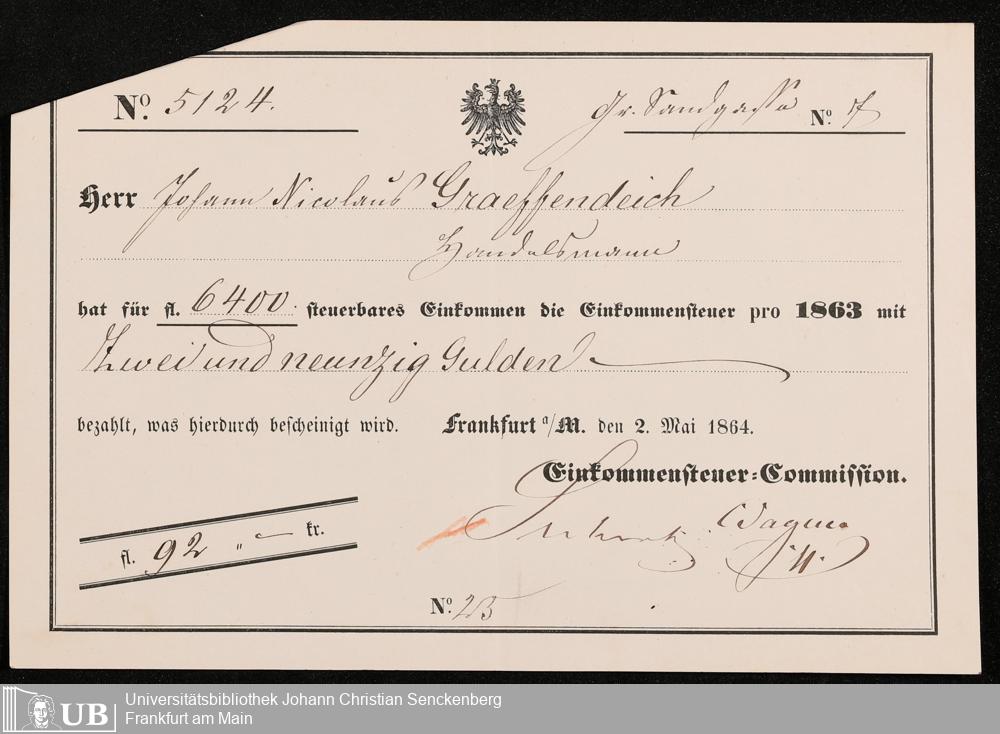 No. 5124.
Gr. Sandgasse No.
Herr Johann Nicolaus Graeffendeich
Handelsmann
hat für fl. 6400. steuerbares Einkommen die Einkommensteuer pro 1863 mit
Zwei und neunzig Gulden
bezahlt, was hierdurch bescheinigt wird. Frankfurt a/M. den 2. Mai 1864.
Einkommensteuer-Commission.
Wagner
fl. 92 " — kr.
No.
Universitätsbibliothek Johann Christian Senckenberg
UB Frankfurt am Main